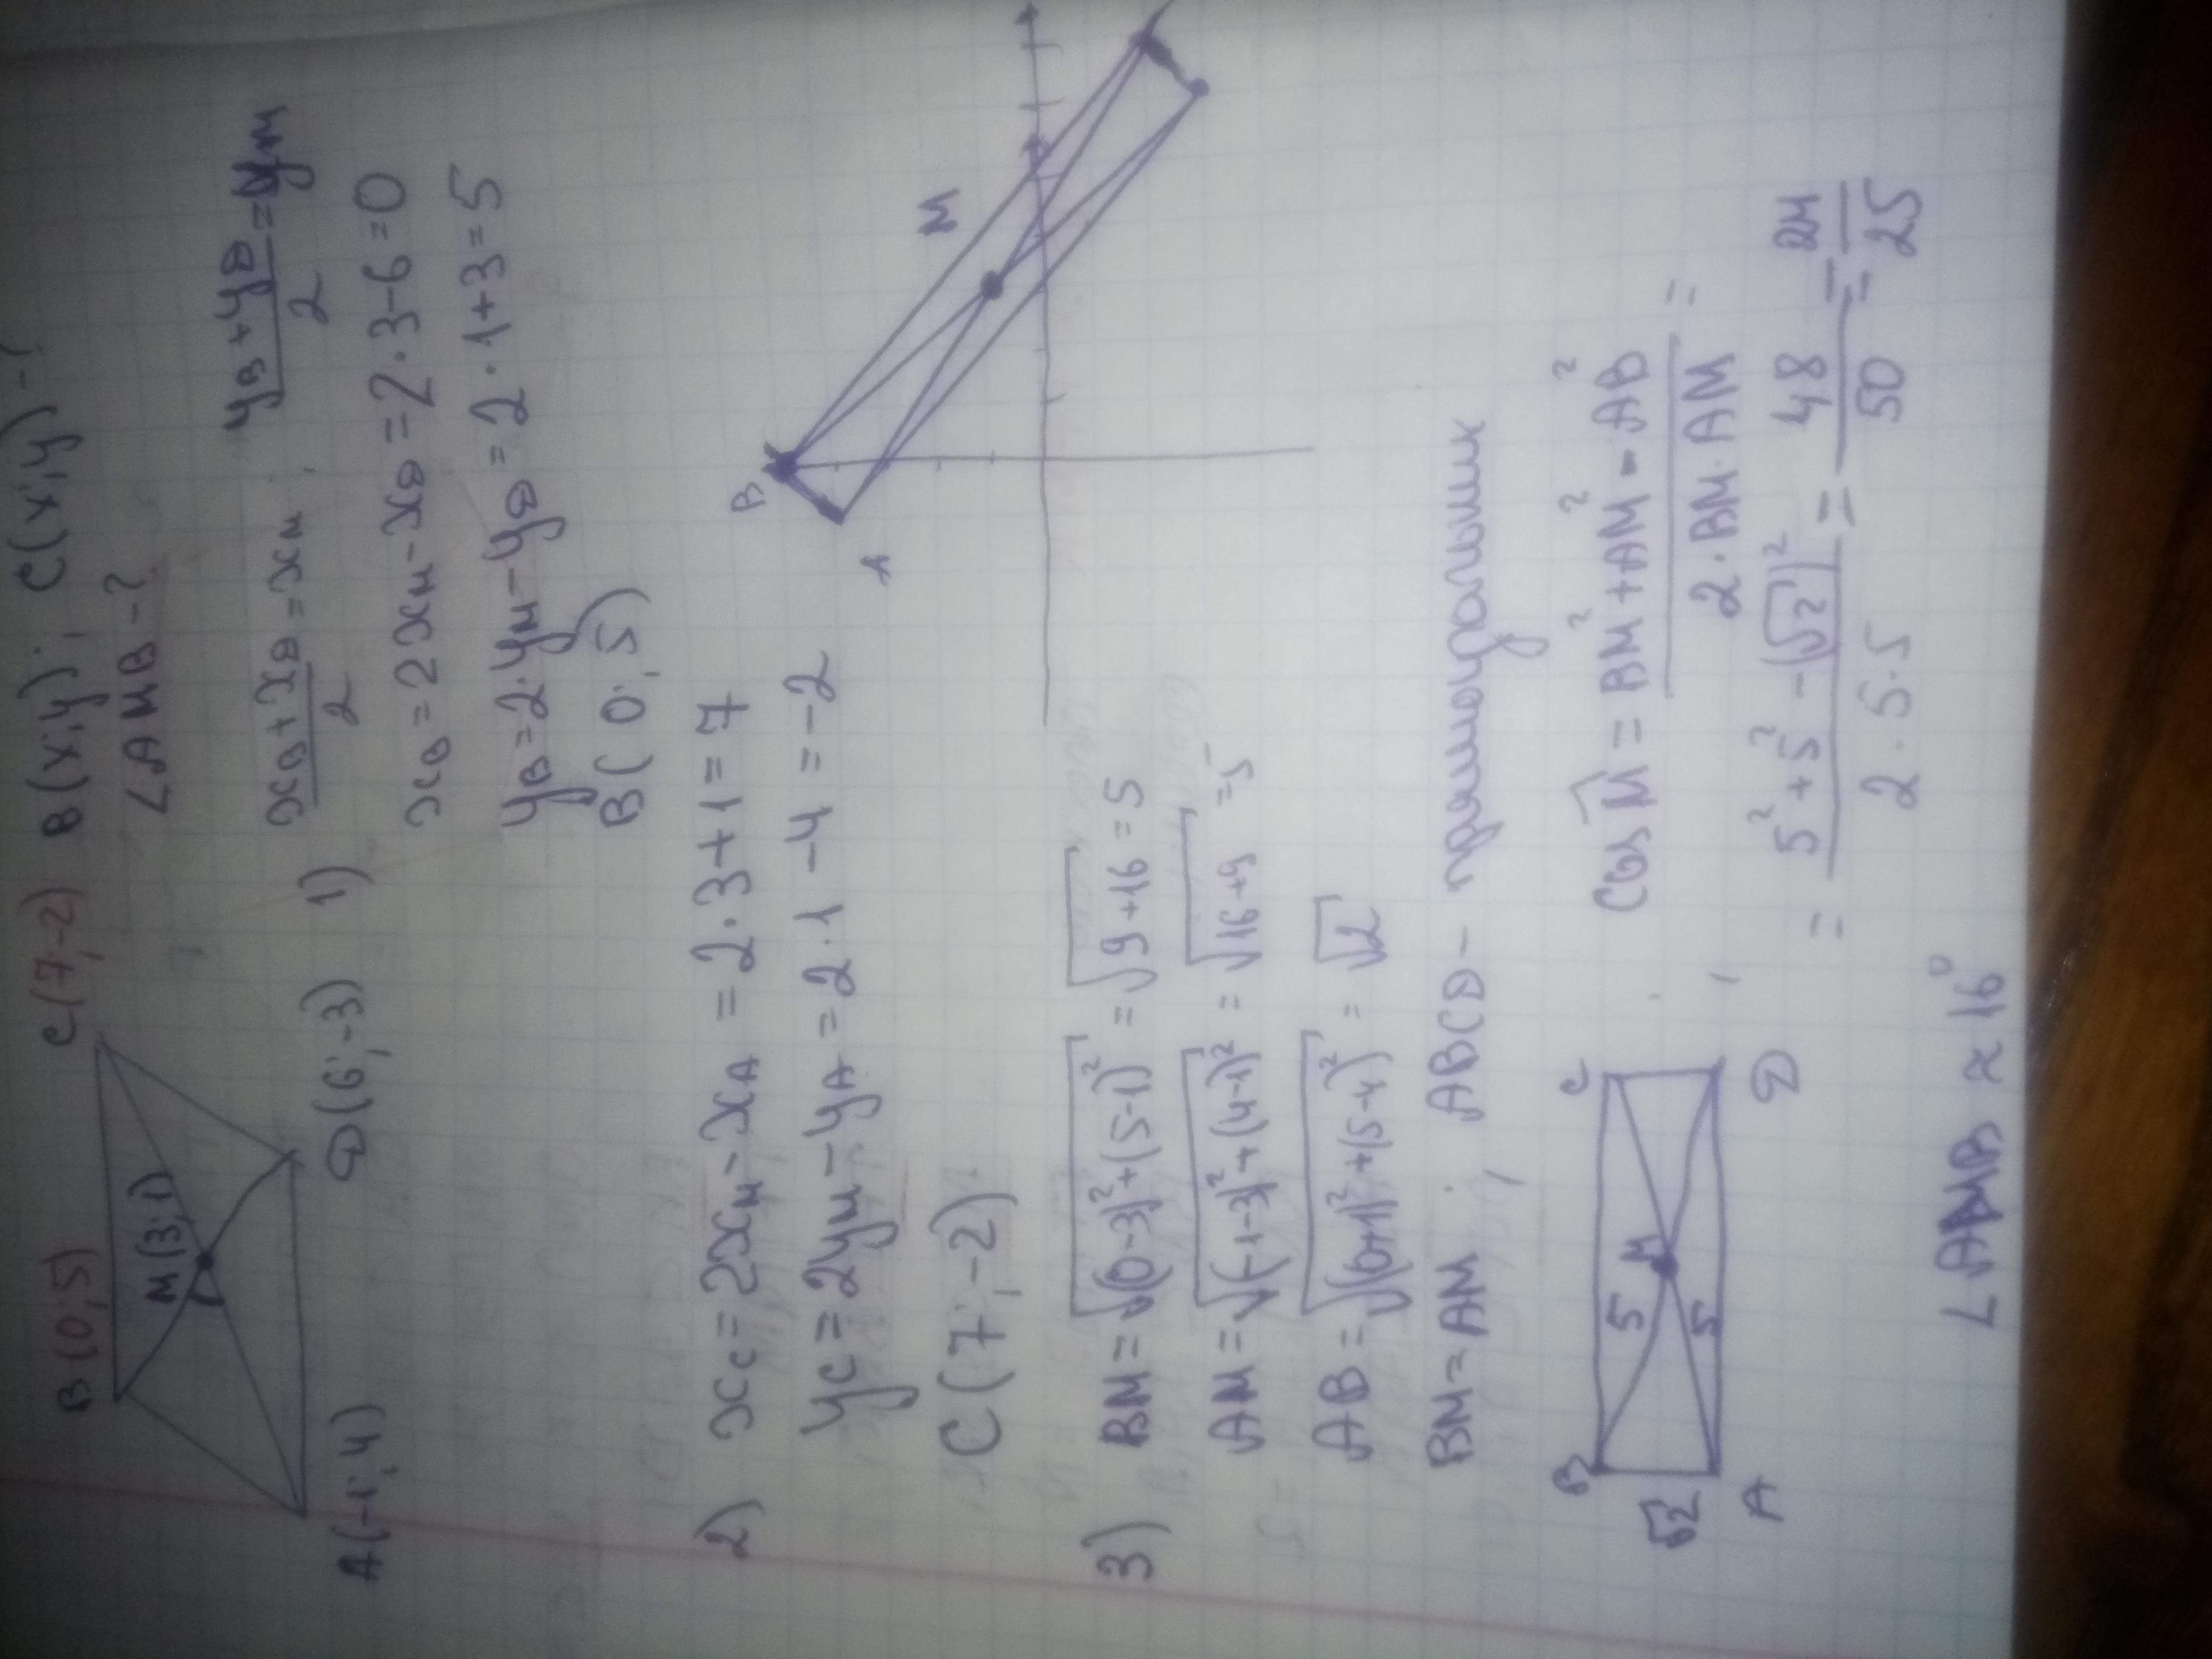 B(x;y); C(x;y)-?
∠AMB-?
B(0;5) C(7;-2)
M(3;1)
A(-1;4) D(6;-3)
1) (x_B+x_D)/2=x_M, (y_B+y_D)/2=y_M
x_B=2x_M-x_D=2·3-6=0
y_B=2·y_M-y_D=2·1+3=5
B(0;5)
2) x_C=2x_M-x_A=2·3+1=7
y_C=2y_M-y_A=2·1-4=-2
C(7;-2)
B
M
A
3) BM=√((0-3)²+(5-1)²)=√(9+16)=5
AM=√((-1-3)²+(4-1)²)=√(16+9)=5
AB=√((0+1)²+(5-4)²)=√2
BM=AM; ABCD-прямоугольник
B C
√2 5 M
5
A D
cos M=(BM²+AM²-AB²)/(2·BM·AM)=
=(5²+5²-(√2)²)/(2·5·5)=48/50=24/25
∠AMB≈16°